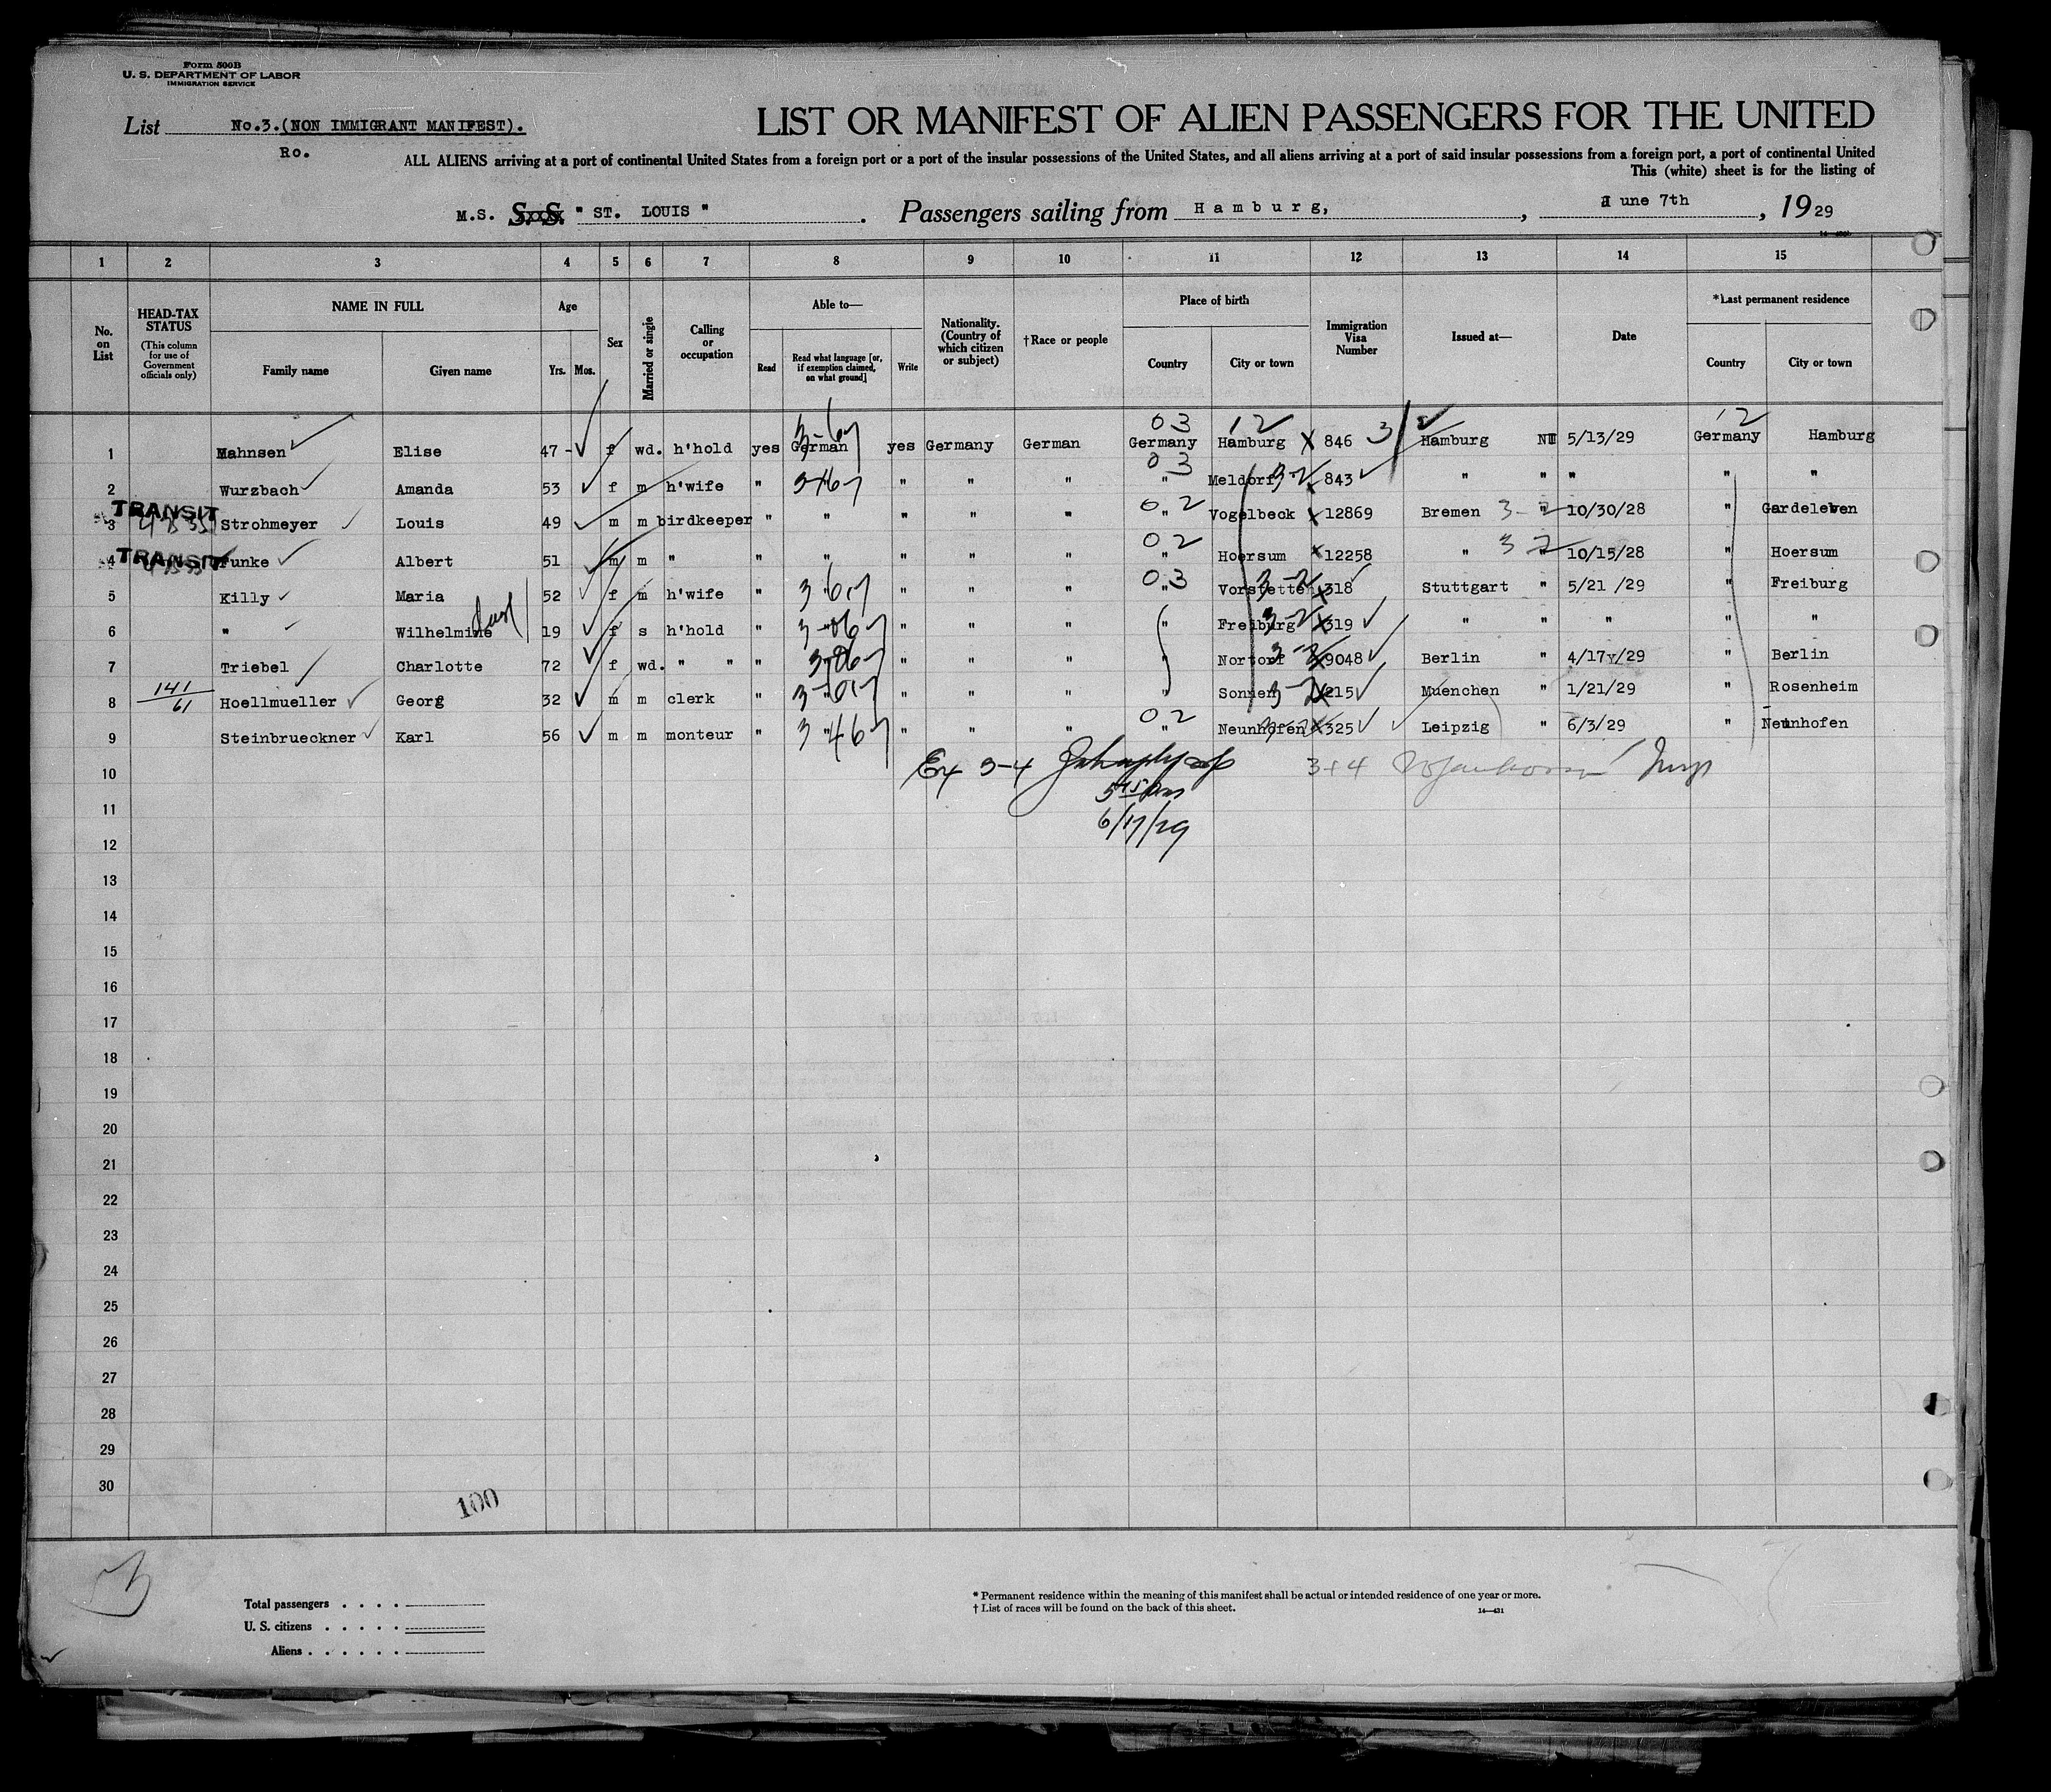 Form 500B
U. S. DEPARTMENT OF LABOR
IMMIGRATION SERVICE
List No.3.(NON IMMIGRANT MANIFEST).
Ro.
LIST OR MANIFEST OF ALIEN PASSENGERS FOR THE UNITED
ALL ALIENS arriving at a port of continental United States from a foreign port or a port of the insular possessions of the United States, and all aliens arriving at a port of said insular possessions from a foreign port, a port of continental United
This (white) sheet is for the listing of
M.S. S.S. " ST. LOUIS " . Passengers sailing from Hamburg, , June 7th , 1929
1 2 3 4 5 6 7 8 9 10 11 12 13 14 15
No. on List
HEAD-TAX STATUS (This column for use of Government officials only)
NAME IN FULL
Family name Given name
Age
Yrs. Mos.
Sex
Married or single
Calling or occupation
Able to—
Read
Read what language [or, if exemption claimed, on what ground]
Write
Nationality. (Country of which citizen or subject)
†Race or people
Place of birth
Country City or town
Immigration Visa Number
Issued at—
Date
*Last permanent residence
Country City or town
03 12 3/2 12
1 Mahnsen Elise 47 - f wd. h'hold yes German 3-67 yes Germany German Germany Hamburg X 846 Hamburg 5/13/29 Germany Hamburg
2 Wurzbach Amanda 53 f m h'wife " " " " " 03 Meldorf 3-2 843 " " " " "
TRANSIT
3 Strohmeyer Louis 49 m m birdkeeper " " " " " 02 " Vogelbeck X 12869 Bremen 3-2 " 10/30/28 " Gardeleben
TRANSIT
4 Funke Albert 51 m m " " " " " " 02 " Hoersum X 12258 " 3-2 10/15/28 " Hoersum
5 Killy Maria 52 f m h'wife " " " " " 03 " Vorstetten 3-2 318 Stuttgart " 5/21 /29 " Freiburg
6 " Wilhelmine 19 f s h'hold " " " " " " Freiburg 3-2 X 319 " " " " "
7 Triebel Charlotte 72 f wd. " " " " " " " " Nortorf 3-2 X 9048 Berlin " 4/17/29 " Berlin
8 141/61 Hoellmueller Georg 32 m m clerk " " " " " " Sonnen 3-2 X 215 Muenchen " 1/21/29 " Rosenheim
9 Steinbrueckner Karl 56 m m monteur " " " " " 02 " Neunhofen X 325 Leipzig " 6/3/29 " Neunhofen
10 Ex 3-4 3+4
11
6/17/29
12
13
14
15
16
17
18
19
20
21
22
23
24
25
26
27
28
29
30
100
Total passengers . . . .
U. S. citizens . . . . .
Aliens . . . . . .
* Permanent residence within the meaning of this manifest shall be actual or intended residence of one year or more.
† List of races will be found on the back of this sheet.
14—431